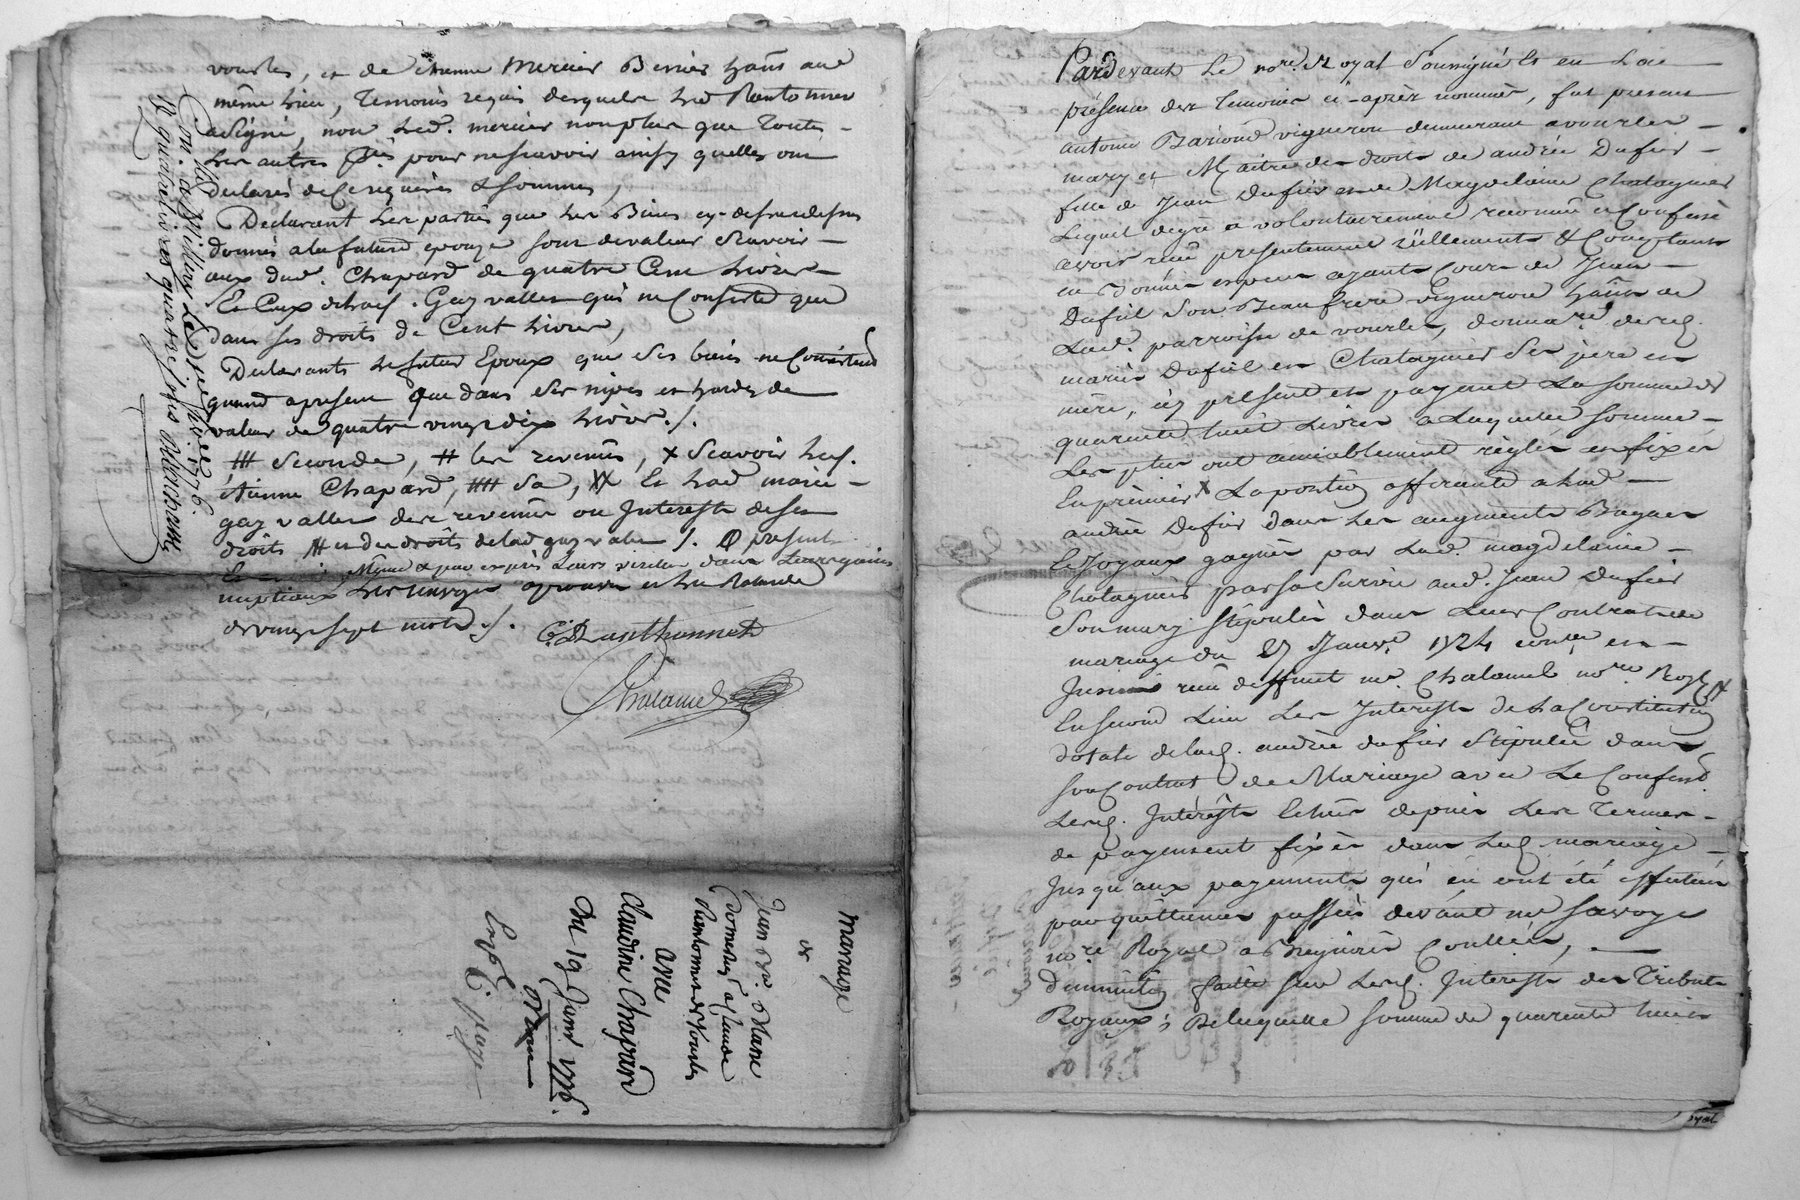 vourles, et de etienne mercier Berrier habitant aud
même Lieu, temoins requis desquels led Rantonnet
a signé, non led. mercier non plus que toutes
les autres pties pour ne scavoir ainsy quelles ont
declaré de ce enquises & sommés,
Declarant les parties que les Biens cy-dessus
donnés a la future epouze sont de valeur scavoir
ceux dud. Chapard de quatre Cent Livres
Et Ceux de lad. Gay vallet qui ne Consiste que
dans ses droits de Cent Livres,
Declarants le futur Epoux que ses biens ne Consistent
quand apresent que dans ses nipes et hardes de
valeur de quatre vingt dix Livres ./.
seconde, # les revenus, x scavoir led.
étienne Chapard, sa, Et lad marie
gay vallet des revenus ou Interests de ses
droits et des droits de lad gay valet ./. present
nuptiaux Les renvoys aprouvés et les Ratures
de vingt sept mots ./.
C. Ranthonnet
Chalamel
Con.lé a Millery Le 1776.
R quatre livres quatre sols
mariage
de
Jean Marie
domestiq a
Rantonnet de Vourles
avec
Claudine Chapard
Du 19 Janv 1776.
Exp
Pardevant Le nore. Royal Soussigné Et en La
présence des temoins ci-après nommés, fut present
antoine Bariond vigneron demeurant a vourles
mary et Maitre des droits de andrée Dufier
fille de Jean Dufier et de Magdelaine Chatagnier
Lequel degré a volontairement reconnu et Confessé
avoir reçu presentement réellement & Comptant
en bonnes especes ayants Cours de Jean
Dufiel Son Beaufrere vigneron habitant de
Lad. parroisse de vourles, donnatre desd.
mariés Dufiel et Chatagnier Ses pere et
mère, icy présent et payant La somme de
quarente huit Livres a Laquelle somme
Les pties ont amiablement réglés et fixés
En premier x La portion afferante a lad
andrée Dufier dans Les augments Bagues
& Joyaux gagnés par Lad. magdelaine
Chatagnier par sa Survie aud. Jean Dufier
Son mary Stipulés dans Leur Contrat de
mariage du 27 Janvr 1724 conlé en
reçu deffunt me. Chalamel nore Royl
En second Lieu Les Interests de la Constitution
dotale de lad. andrée dufier Stipulée dans
son Contrat de Mariage avec Le Confesst.
Lesd. Intérests Echus depuis Les Termes
de payement fixés dans Led mariage
Jusqu'aux payements qui en ont été effectués
par quittances passées devant me Savoye
nore Royal a Conlées,
diminution faitte sur Lesd. Interests des Tributs
Royaux; De laquelle somme de quarente huit